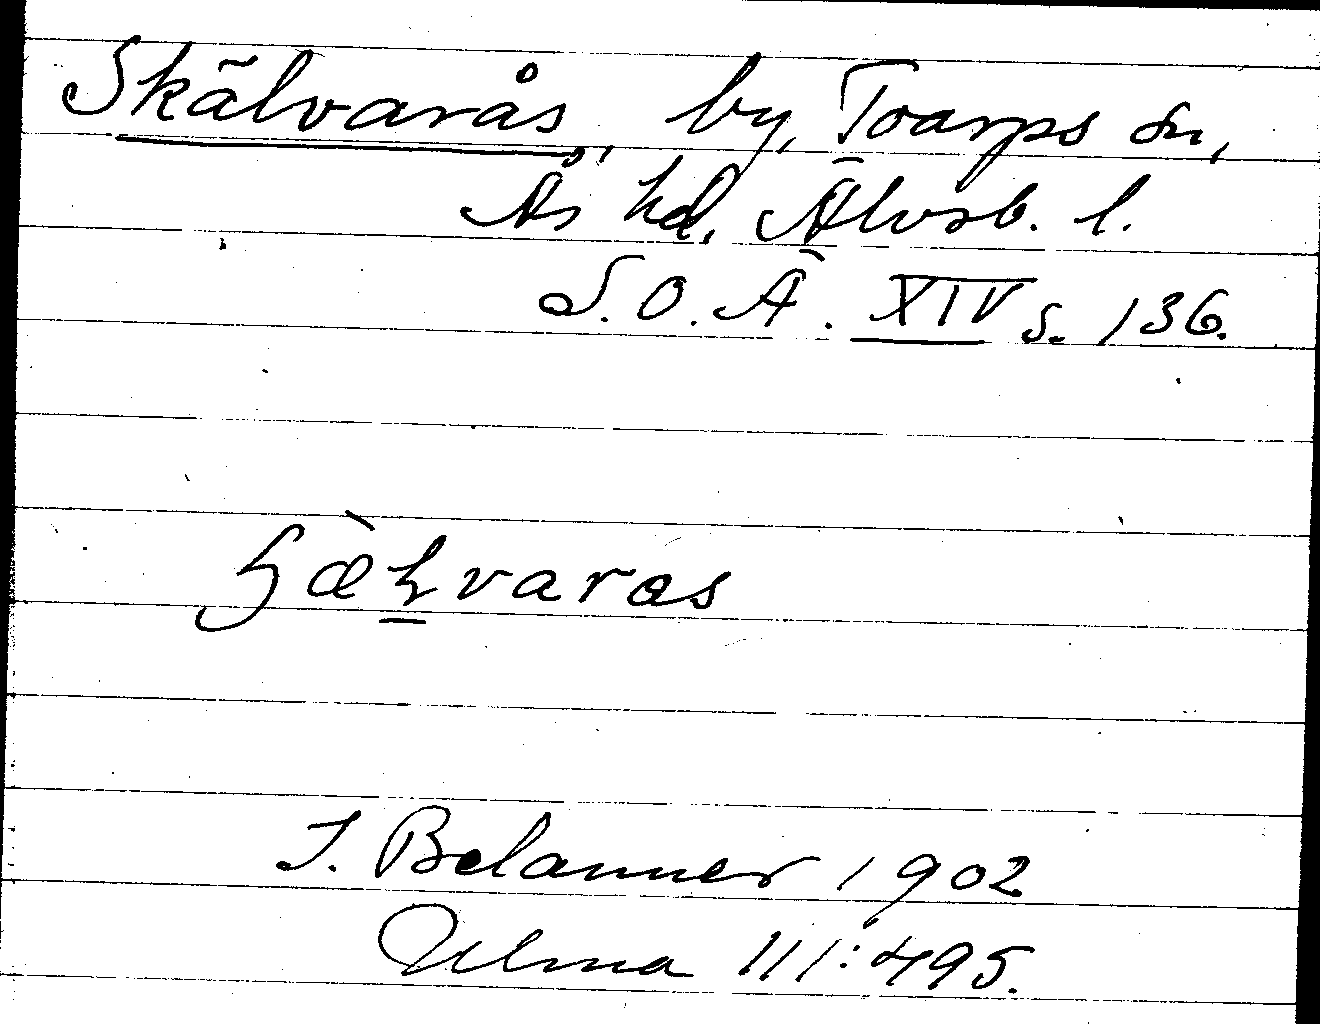 Skälvarås, by, Toarps sn,
Ås hd, Älvsb. l.
S.O.Ä. XIV s. 136.
ɧæ̀ꞎvaras
J. Belanner 1902
Ulma 111:495.